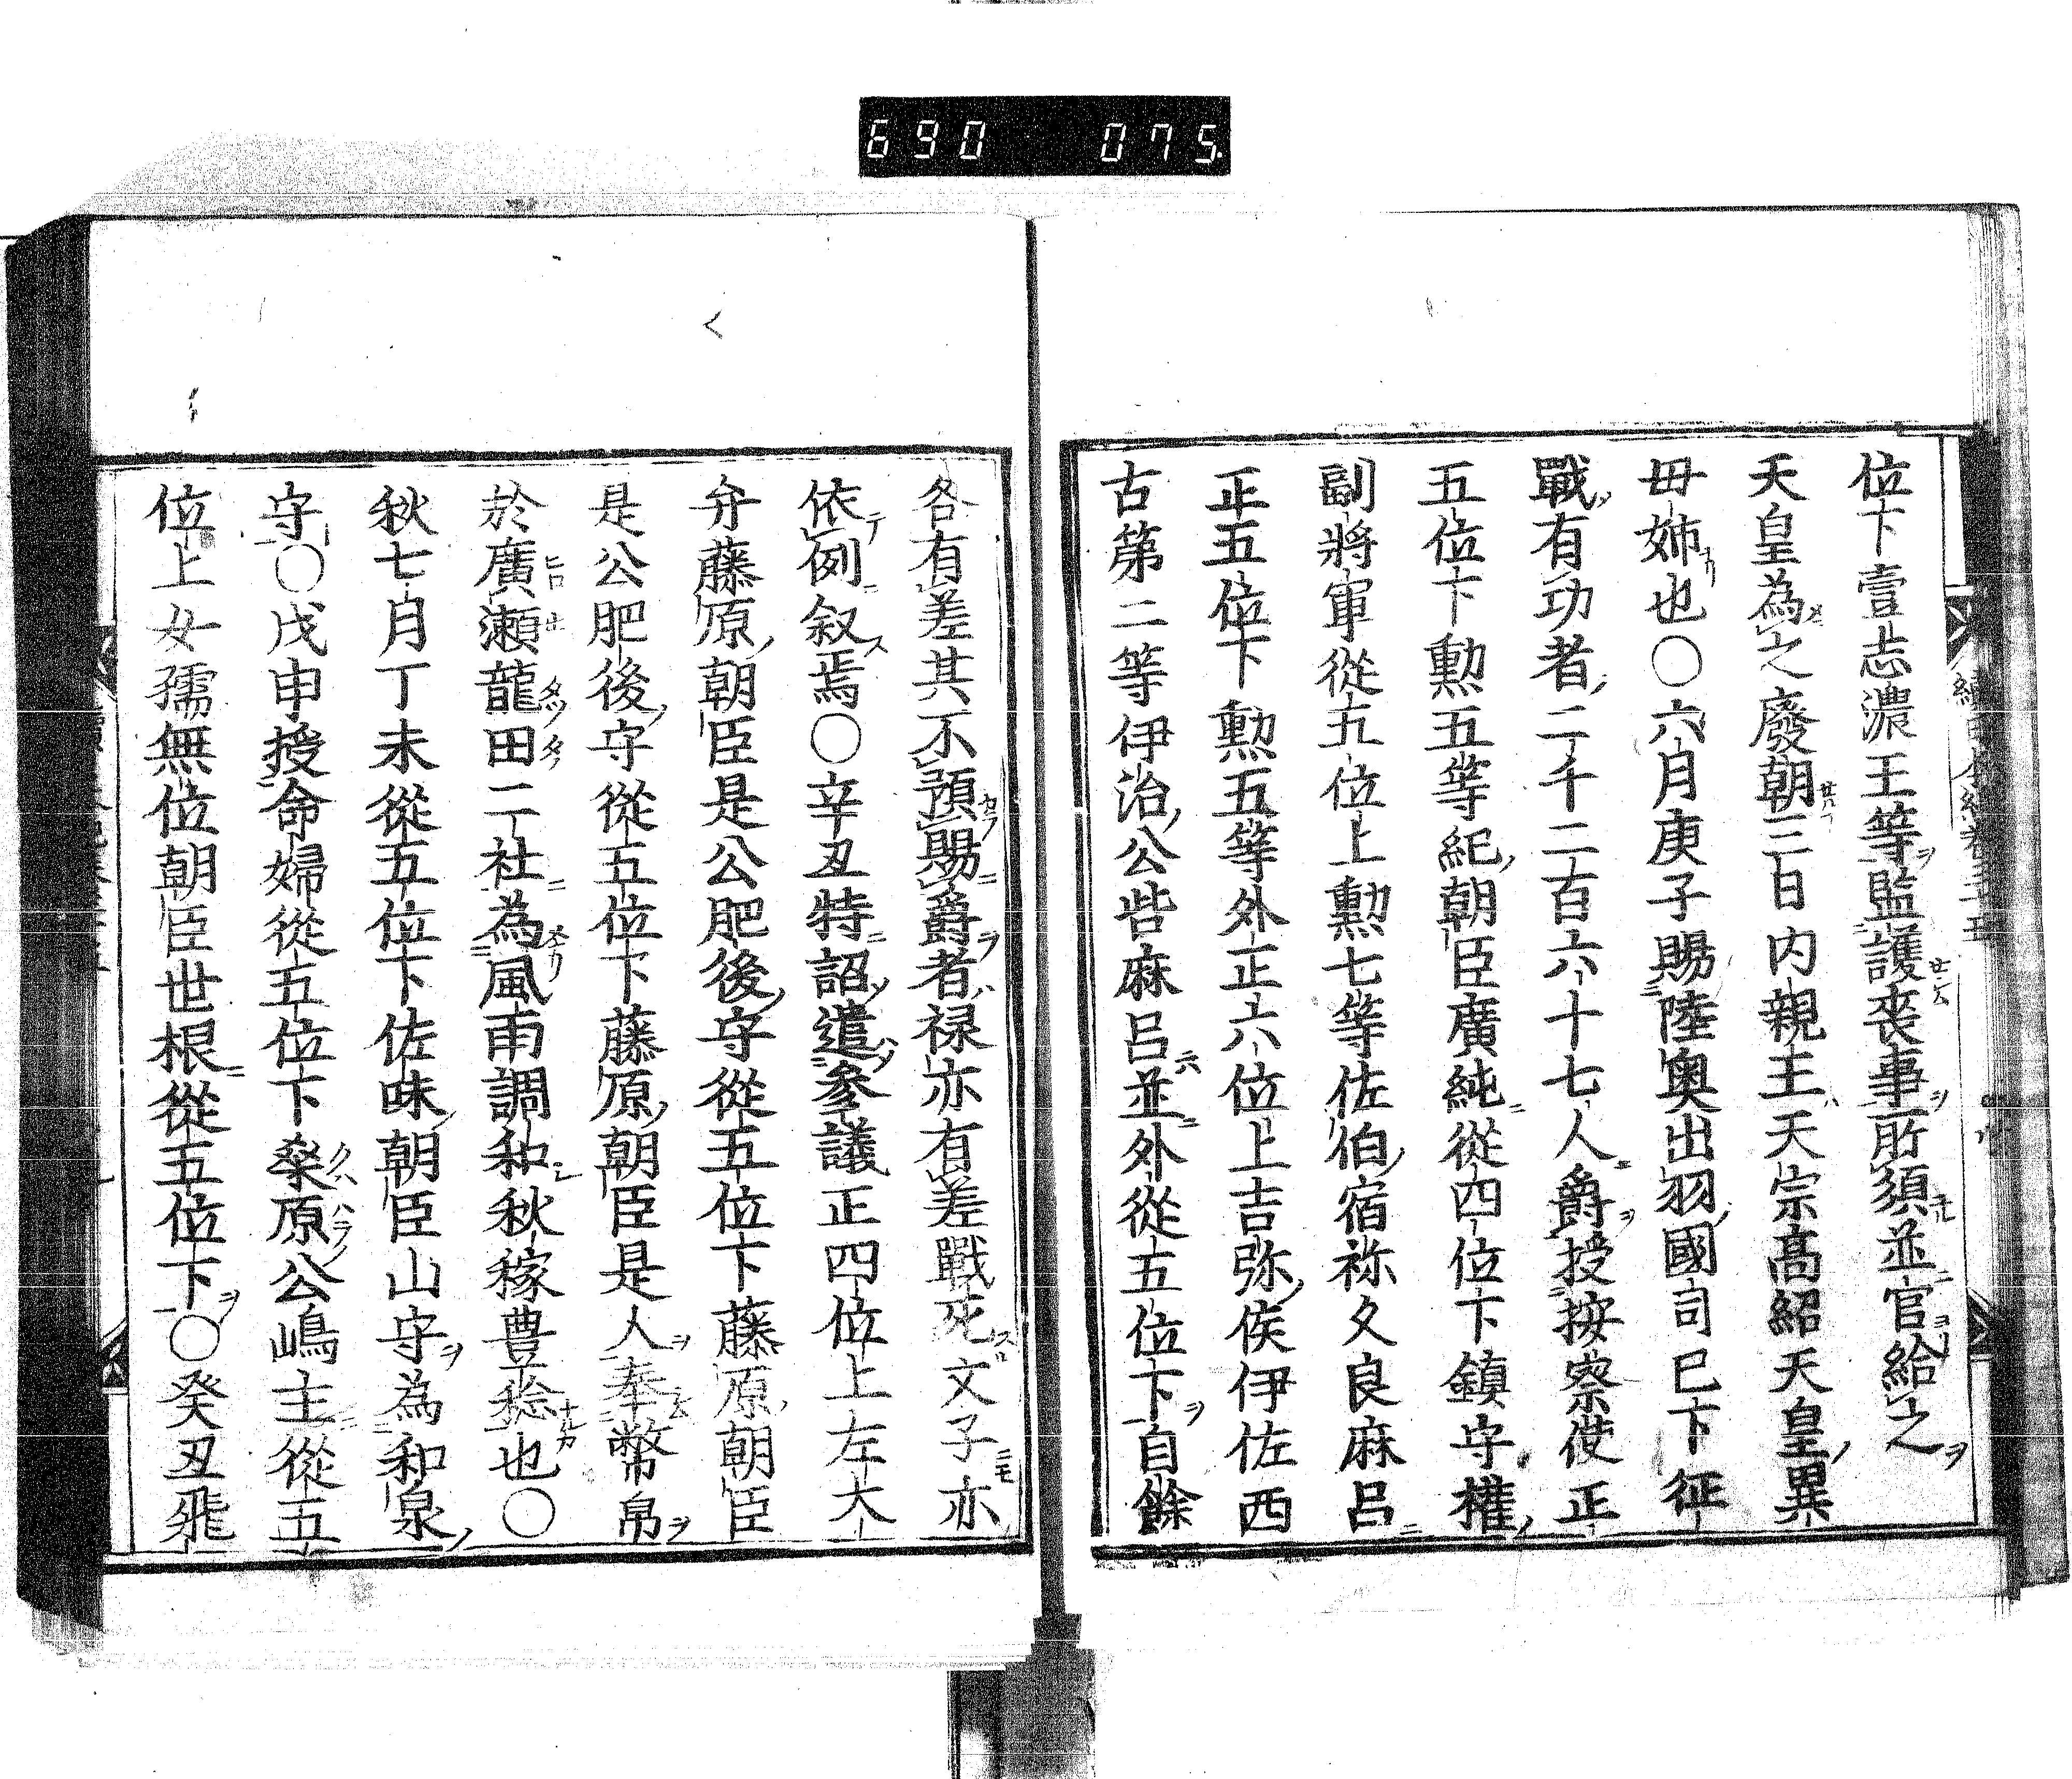 690 075
位下壹志濃王等監護喪事所須並官給之
天皇為之廢朝三日内親王天宗高紹天皇異
母姉也〇六月庚子賜陸奥出羽國司已下征
戰有功者二千二百六十七人爵授按察使正
五位下勲五等紀朝臣廣純從四位下鎮守權
副將軍從五位上勲七等佐伯宿祢久良麻呂
正五位下勲五等外正六位上吉弥侯伊佐西
古第二等伊治公呰麻呂並外從五位下自餘
各有差其不預賜爵者禄亦有差戰死文子亦
依例叙焉〇辛丑特詔遣参議正四位上左大
弁藤原朝臣是公肥後守從五位下藤原朝臣
是公肥後守從五位下藤原朝臣是人奉幣帛
於廣瀬龍田二社為風雨調和秋稼豊稔也〇
秋七月丁未從五位下佐味朝臣山守為和泉
守〇戊申授命婦從五位下桒原公嶋主從五
位上女孺無位朝臣世根從五位下〇癸丑飛